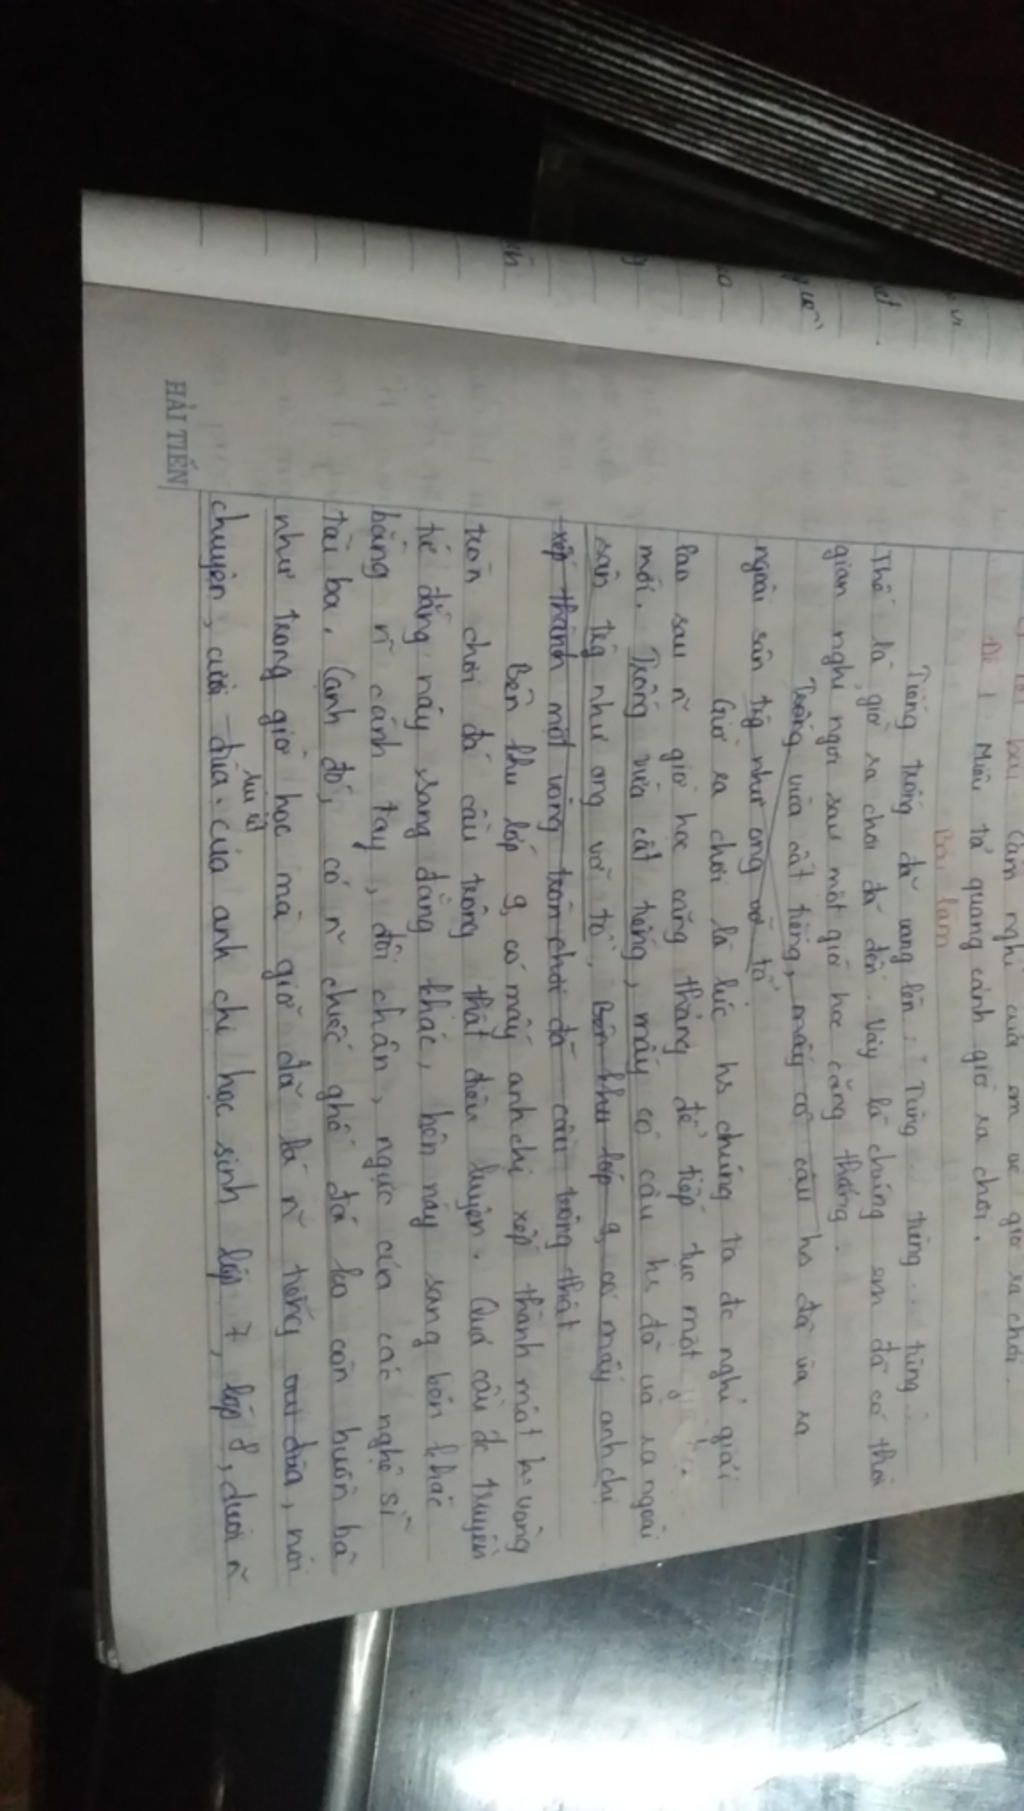 bài
Cảm nghĩ của em về giờ ra chơi.
Đề 1 Miêu tả quang cảnh giờ ra chơi.
Bài làm
Tiếng trống đã vang lên. Tùng... tùng... tùng...
Thế là giờ ra chơi đã đến. Vậy là chúng em đã có thời
gian nghỉ ngơi sau một giờ học căng thẳng.
Trống vừa cất tiếng, mấy cô cậu hs đã ùa ra
ngoài sân tg như ong vỡ tổ
Giờ ra chơi là lúc hs chúng ta đc nghỉ giải
lao sau n~ giờ học căng thẳng để tiếp tục một
mới. Trống vừa cất tiếng, mấy cô cậu hs đã ùa ra ngoài
sân tg như ong vỡ tổ, Bên khu lớp 9, có mấy anh chị
xếp thành một vòng tròn chơi đá cầu trông thật
Bên khu lớp 9, có mấy anh chị xếp thành một h. vòng
tròn chơi đá cầu trông thật điêu luyện. Quả cầu đc truyền
từ đằng này sang đằng khác, bên này sang bên khác
bằng n~ cánh tay, đôi chân, ngực của các nghệ sĩ
tài ba. Cạnh đó, có n~ chiếc ghế đá ko còn buồn bã
như trong giờ học mà giờ đã là n~ tiếng đùa, nói
ríu rít
chuyện, cười đùa của anh chị học sinh lớp 7, lớp 8, dưới n~
HẢI TIẾN